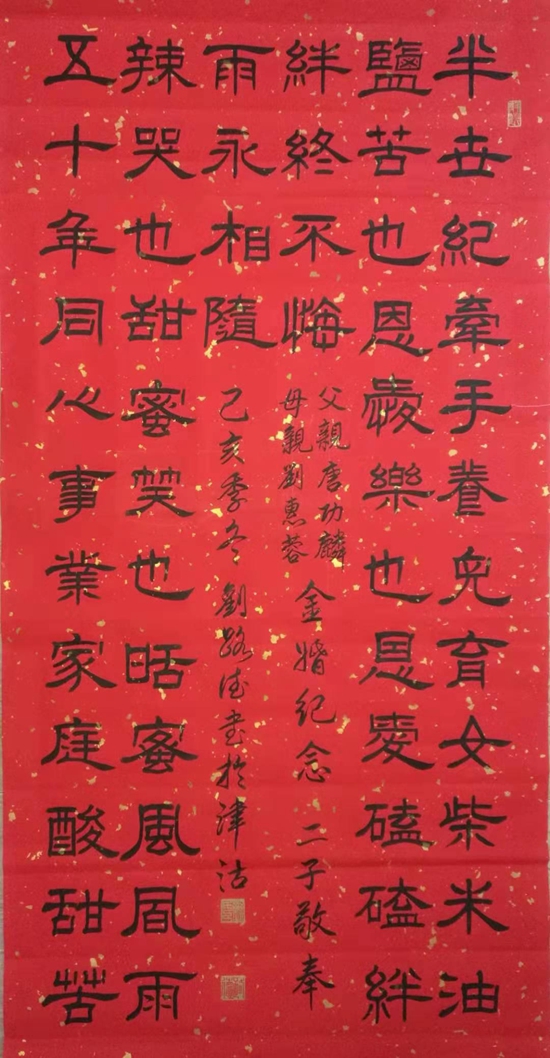 半世紀牽手養兒育女柴米油
鹽苦也恩愛樂也恩愛磕磕絆
絆終不悔
父親唐功麟
母親劉惠蓉
金婚紀念 二子敬奉
五十年同心事業家庭酸甜苦
辣哭也甜蜜笑也甛蜜風風雨
雨永相隨
己亥季冬劉路德書於津沽